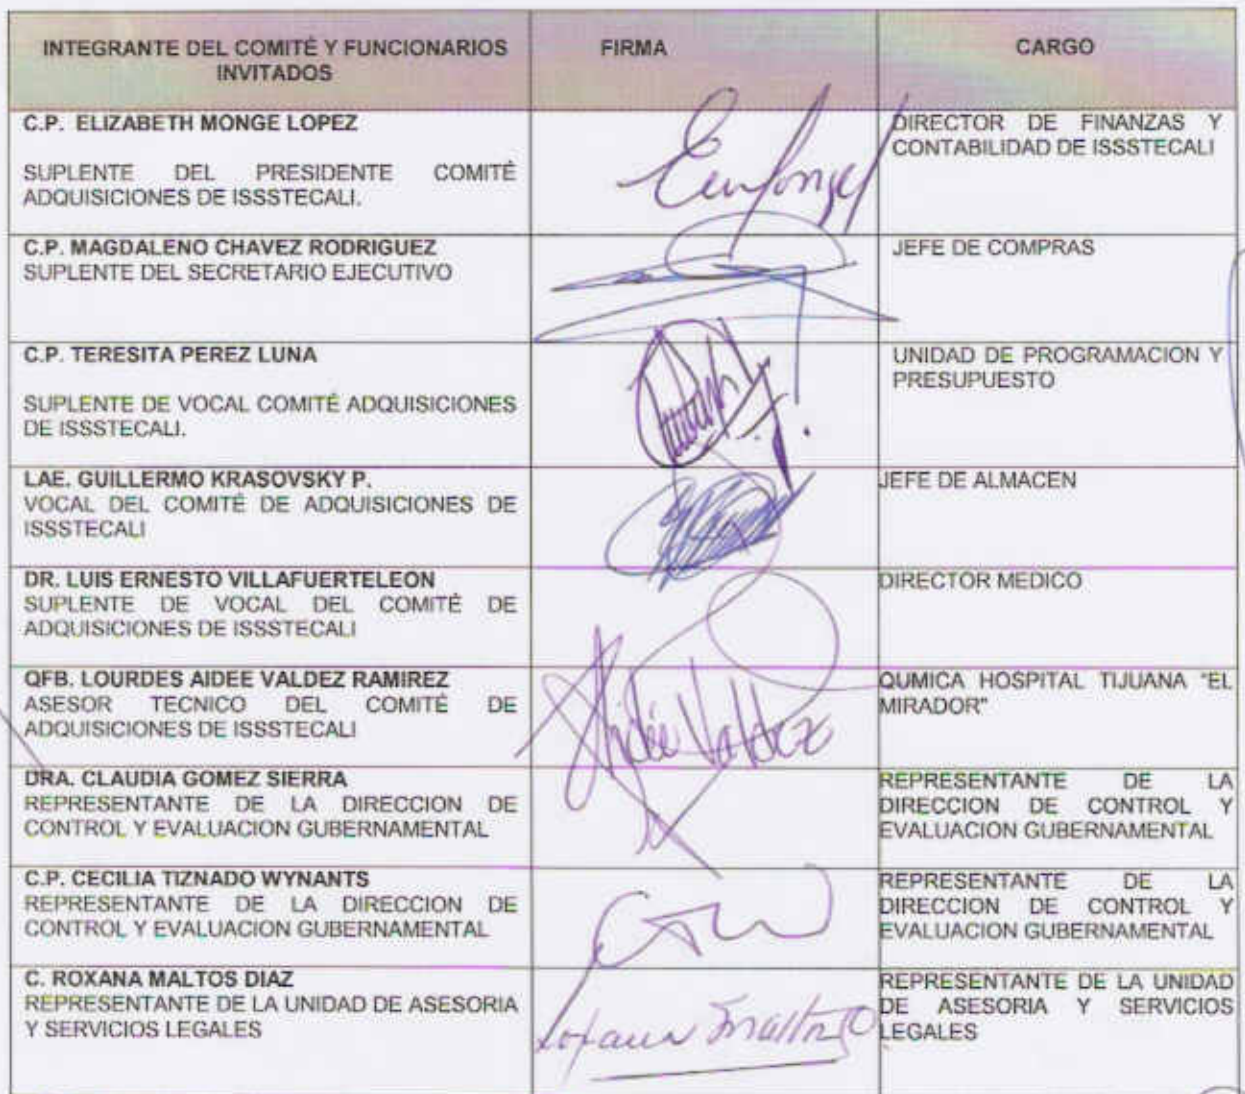 INTEGRANTE DEL COMITÉ Y FUNCIONARIOS
INVITADOS
FIRMA
CARGO
C.P. ELIZABETH MONGE LOPEZ
SUPLENTE DEL PRESIDENTE COMITÉ
ADQUISICIONES DE ISSSTECALI.
DIRECTOR DE FINANZAS Y
CONTABILIDAD DE ISSSTECALI
C.P. MAGDALENO CHAVEZ RODRIGUEZ
SUPLENTE DEL SECRETARIO EJECUTIVO
JEFE DE COMPRAS
C.P. TERESITA PEREZ LUNA
SUPLENTE DE VOCAL COMITÉ ADQUISICIONES
DE ISSSTECALI.
UNIDAD DE PROGRAMACION Y
PRESUPUESTO
LAE. GUILLERMO KRASOVSKY P.
VOCAL DEL COMITÉ DE ADQUISICIONES DE
ISSSTECALI
JEFE DE ALMACEN
DR. LUIS ERNESTO VILLAFUERTELEON
SUPLENTE DE VOCAL DEL COMITÉ DE
ADQUISICIONES DE ISSSTECALI
DIRECTOR MEDICO
QFB. LOURDES AIDEE VALDEZ RAMIREZ
ASESOR TECNICO DEL COMITÉ DE
ADQUISICIONES DE ISSSTECALI
Aidée Valdez
QUMICA HOSPITAL TIJUANA "EL
MIRADOR"
DRA. CLAUDIA GOMEZ SIERRA
REPRESENTANTE DE LA DIRECCION DE
CONTROL Y EVALUACION GUBERNAMENTAL
REPRESENTANTE DE LA
DIRECCION DE CONTROL Y
EVALUACION GUBERNAMENTAL
C.P. CECILIA TIZNADO WYNANTS
REPRESENTANTE DE LA DIRECCION DE
CONTROL Y EVALUACION GUBERNAMENTAL
REPRESENTANTE DE LA
DIRECCION DE CONTROL Y
EVALUACION GUBERNAMENTAL
C. ROXANA MALTOS DIAZ
REPRESENTANTE DE LA UNIDAD DE ASESORIA
Y SERVICIOS LEGALES
Roxana Maltos
REPRESENTANTE DE LA UNIDAD
DE ASESORIA Y SERVICIOS
LEGALES